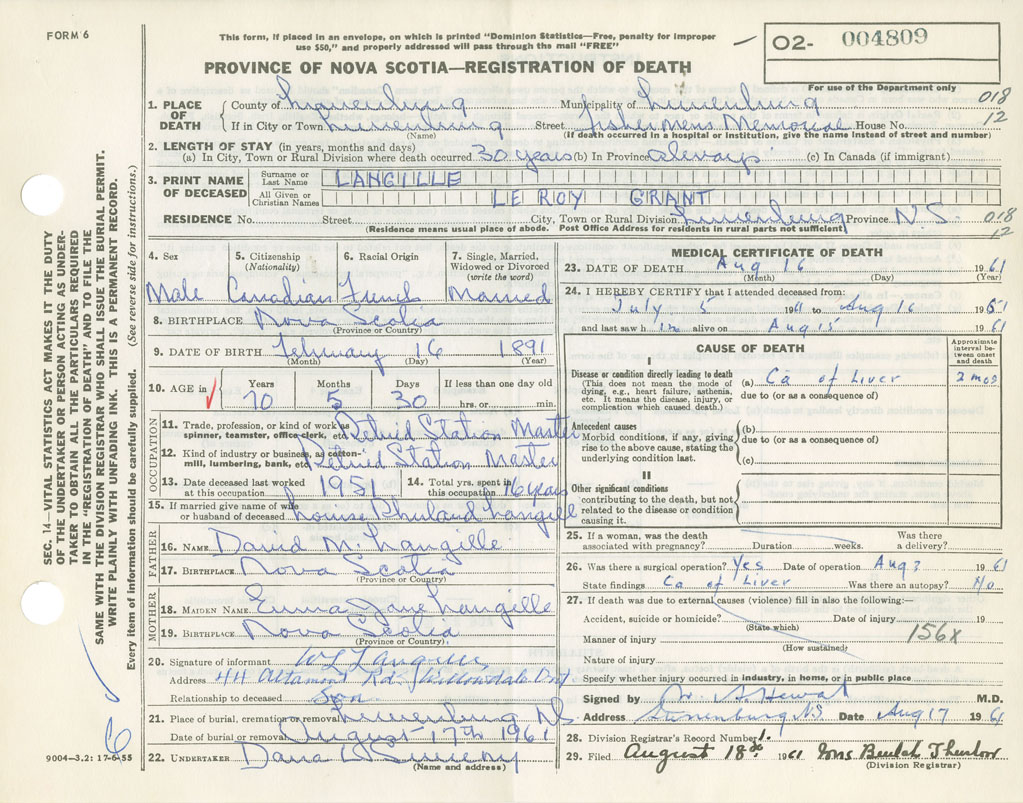 FORM 6
This form, if placed in an envelope, on which is printed "Dominion Statistics—Free, penalty for improper
use $50," and properly addressed will pass through the mail "FREE"
02- 004809
PROVINCE OF NOVA SCOTIA—REGISTRATION OF DEATH
For use of the Department only
1. PLACE OF DEATH County of Lunenburg Municipality of Lunenburg 018
If in City or Town Lunenburg Street Fishermens Memorial House No. 12
(Name) (If death occurred in a hospital or institution, give the name instead of street and number)
2. LENGTH OF STAY (in years, months and days)
(a) In City, Town or Rural Division where death occurred 30 years (b) In Province always (c) In Canada (if immigrant)
3. PRINT NAME OF DECEASED Surname or Last Name LANGILLE
All Given or Christian Names LE ROY GRANT
RESIDENCE No. Street City, Town or Rural Division Lunenburg Province N.S. 018
(Residence means usual place of abode. Post Office Address for residents in rural parts not sufficient) 12
4. Sex 5. Citizenship (Nationality) 6. Racial Origin 7. Single, Married, Widowed or Divorced (write the word)
Male Canadian French Married
8. BIRTHPLACE Nova Scotia
(Province or Country)
9. DATE OF BIRTH February 16 1891
(Month) (Day) (Year)
10. AGE in Years Months Days If less than one day old
70 5 30 hrs. or min.
OCCUPATION
11. Trade, profession, or kind of work as spinner, teamster, office clerk, etc. Retired Station Master
12. Kind of industry or business, as cotton-mill, lumbering, bank, etc. Retired Station Master
13. Date deceased last worked at this occupation 1951 14. Total yrs. spent in this occupation 16 years
15. If married give name of wife or husband of deceased Langille
FATHER
16. NAME David M. Langille
17. BIRTHPLACE Nova Scotia
(Province or Country)
MOTHER
18. MAIDEN NAME Emma Jane Langille
19. BIRTHPLACE Nova Scotia
(Province or Country)
20. Signature of informant W L Langille
Address 44 Altamont Rd. Willowdale Ont
Relationship to deceased Son
21. Place of burial, cremation or removal Lunenburg N.S.
Date of burial or removal August 17th 1961
22. UNDERTAKER Dana L Sweeny
(Name and address)
MEDICAL CERTIFICATE OF DEATH
23. DATE OF DEATH Aug 16 1961
(Month) (Day) (Year)
24. I HEREBY CERTIFY that I attended deceased from:
July 5 1961 to Aug 16 1961
and last saw h im alive on Aug 15 1961
CAUSE OF DEATH
Approximate interval between onset and death
I
Disease or condition directly leading to death
(This does not mean the mode of dying, e.g., heart failure, asthenia, etc. It means the disease, injury, or complication which caused death.)
(a) Ca of Liver 2 mos
due to (or as a consequence of)
Antecedent causes
Morbid conditions, if any, giving rise to the above cause, stating the underlying condition last.
(b)
due to (or as a consequence of)
(c)
II
Other significant conditions
contributing to the death, but not related to the disease or condition causing it.
25. If a woman, was the death associated with pregnancy? Duration weeks. Was there a delivery?
26. Was there a surgical operation? Yes Date of operation Aug 1961
State findings Ca of Liver Was there an autopsy? No
27. If death was due to external causes (violence) fill in also the following:—
Accident, suicide or homicide? Date of injury 19
(State which)
Manner of injury 156X
(How sustained)
Nature of injury
Specify whether injury occurred in industry, in home, or in public place
Signed by Dr. A. Hewat M.D.
Address Lunenburg N.S. Date Aug 17 1961
28. Division Registrar's Record Number 1.
29. Filed August 18th 1961 Mrs Beulah Thurlow
(Division Registrar)
SEC. 14—VITAL STATISTICS ACT MAKES IT THE DUTY
OF THE UNDERTAKER OR PERSON ACTING AS UNDER-
TAKER TO OBTAIN ALL THE PARTICULARS REQUIRED
IN THE "REGISTRATION OF DEATH" AND TO FILE THE
SAME WITH THE DIVISION REGISTRAR WHO SHALL ISSUE THE BURIAL PERMIT.
WRITE PLAINLY WITH UNFADING INK. THIS IS A PERMANENT RECORD.
Every item of information should be carefully supplied. (See reverse side for instructions.)
6
9004—3.2: 17-6-55